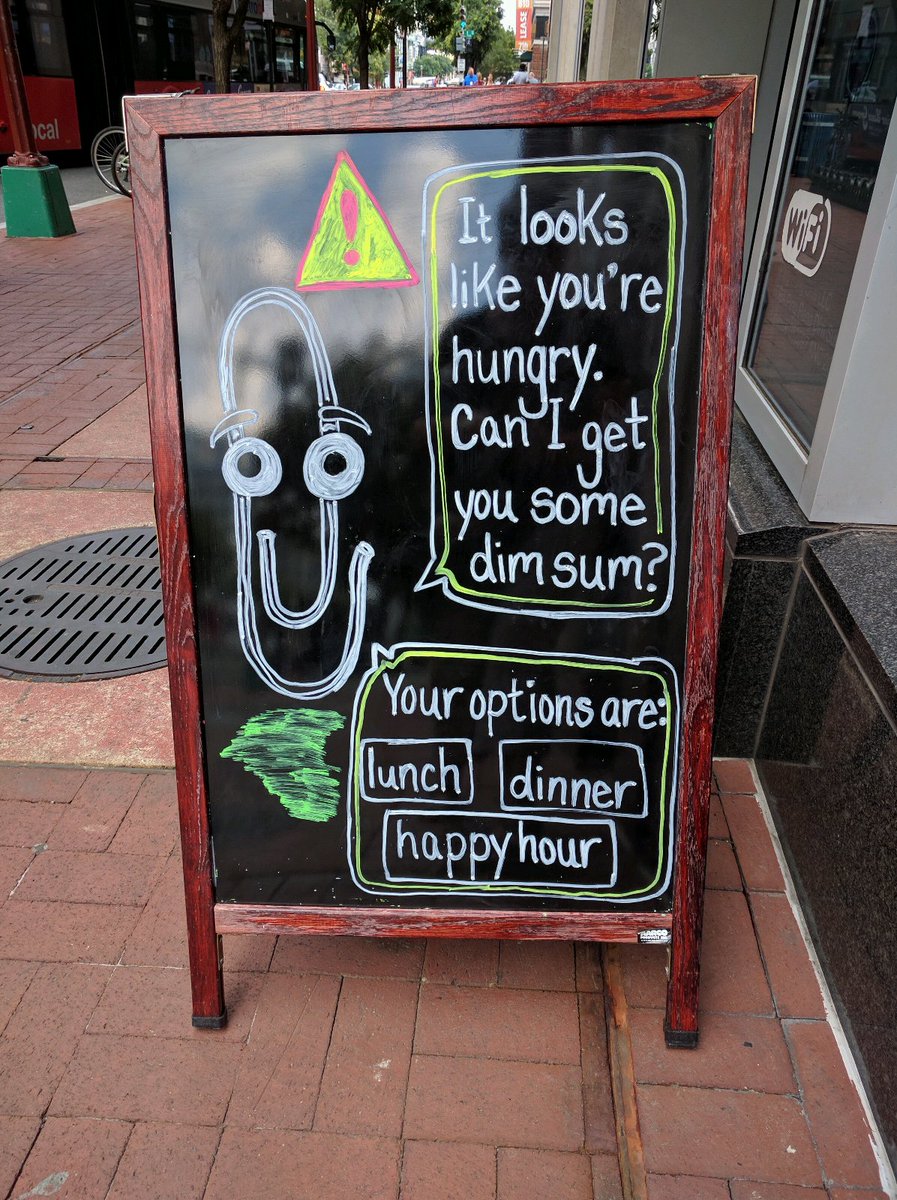 LEASE
ocal
WiFi
!
It looks
like you're
hungry.
Can I get
you some
dim sum?
Your options are:
lunch
dinner
happy hour